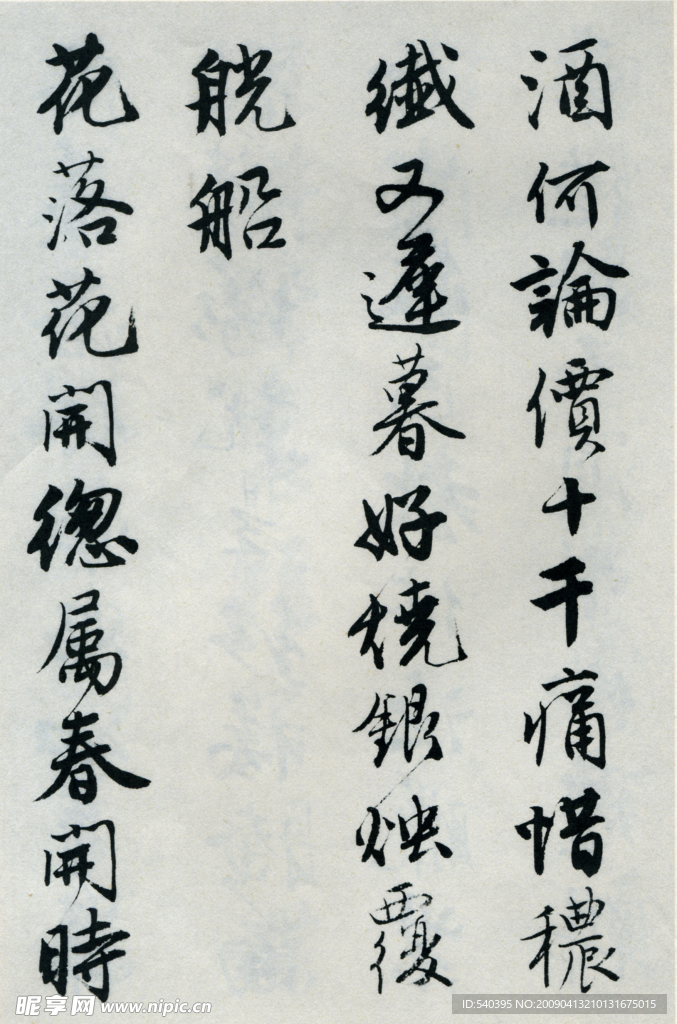 酒何論價十千痛惜穠
纖又遲暮好燒銀燭覆
觥船
花落花開總属春開時
昵享网 www.nipic.cn
ID:540395 NO:20090413210131675015